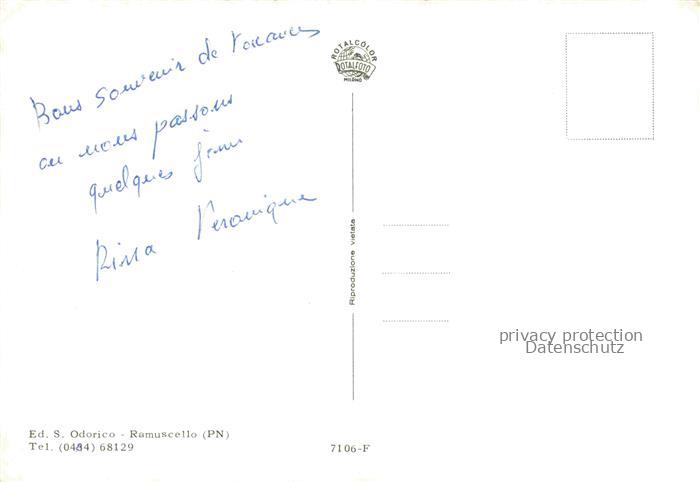 Bons souvenir de vacances
ou nous passons
quelques jours
Rissa Veronique
ROTALCOLOR
ROTALFOTO
MILANO
Riproduzione vietata
privacy protection
Datenschutz
Ed. S. Odorico - Ramuscello (PN)
Tel. (0434) 68129
7106-F